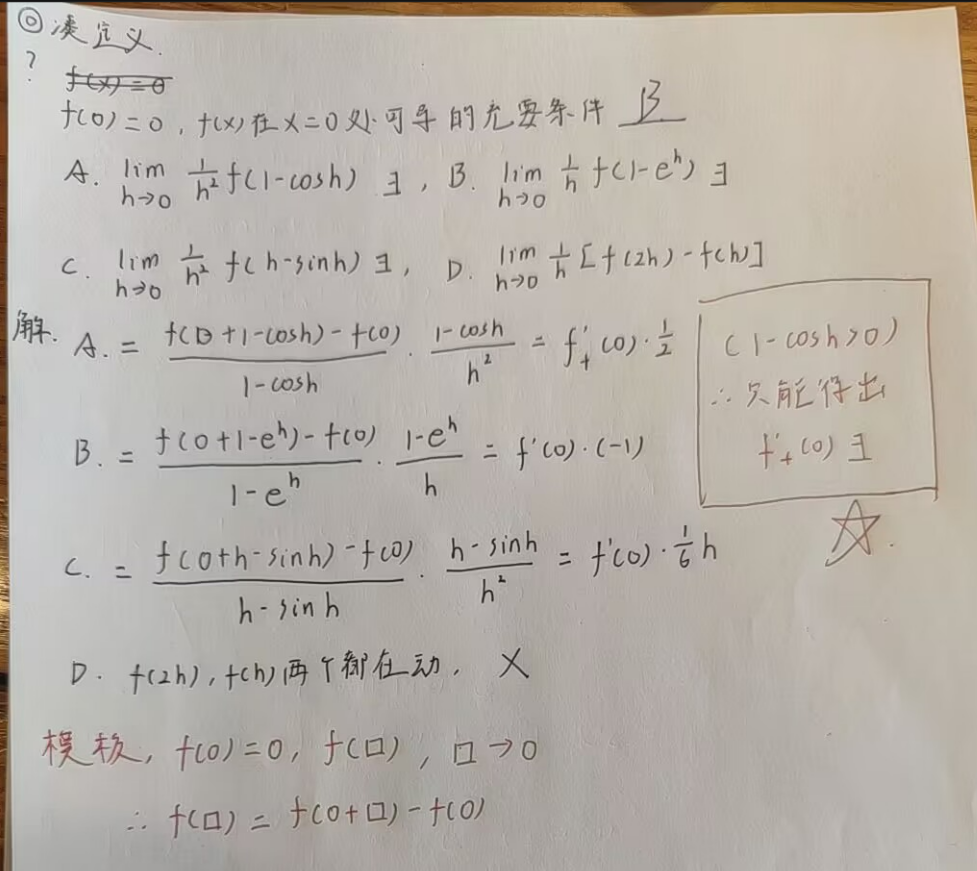 ◎ 凑定义.
?
f(x)=0
f(0)=0, f(x)在x=0处可导的充要条件 B
A. lim h→0 1/h² f(1-cosh) ∃, B. lim h→0 1/h f(1-eʰ) ∃
C. lim h→0 1/h² f(h-sinh) ∃, D. lim h→0 1/h [f(2h)-f(h)]
解. A. = f(0+1-cosh)-f(0) / 1-cosh · 1-cosh / h² = f'₊(0)·1/2
(1-cosh>0)
∴只能得出
f'₊(0) ∃
B. = f(0+1-eʰ)-f(0) / 1-eʰ · 1-eʰ / h = f'(0)·(-1)
C. = f(0+h-sinh)-f(0) / h-sinh · h-sinh / h² = f'(0)·1/6 h
☆.
D. f(2h), f(h)两个都在动. ×
模板, f(0)=0, f(□), □→0
∴ f(□) = f(0+□)-f(0)